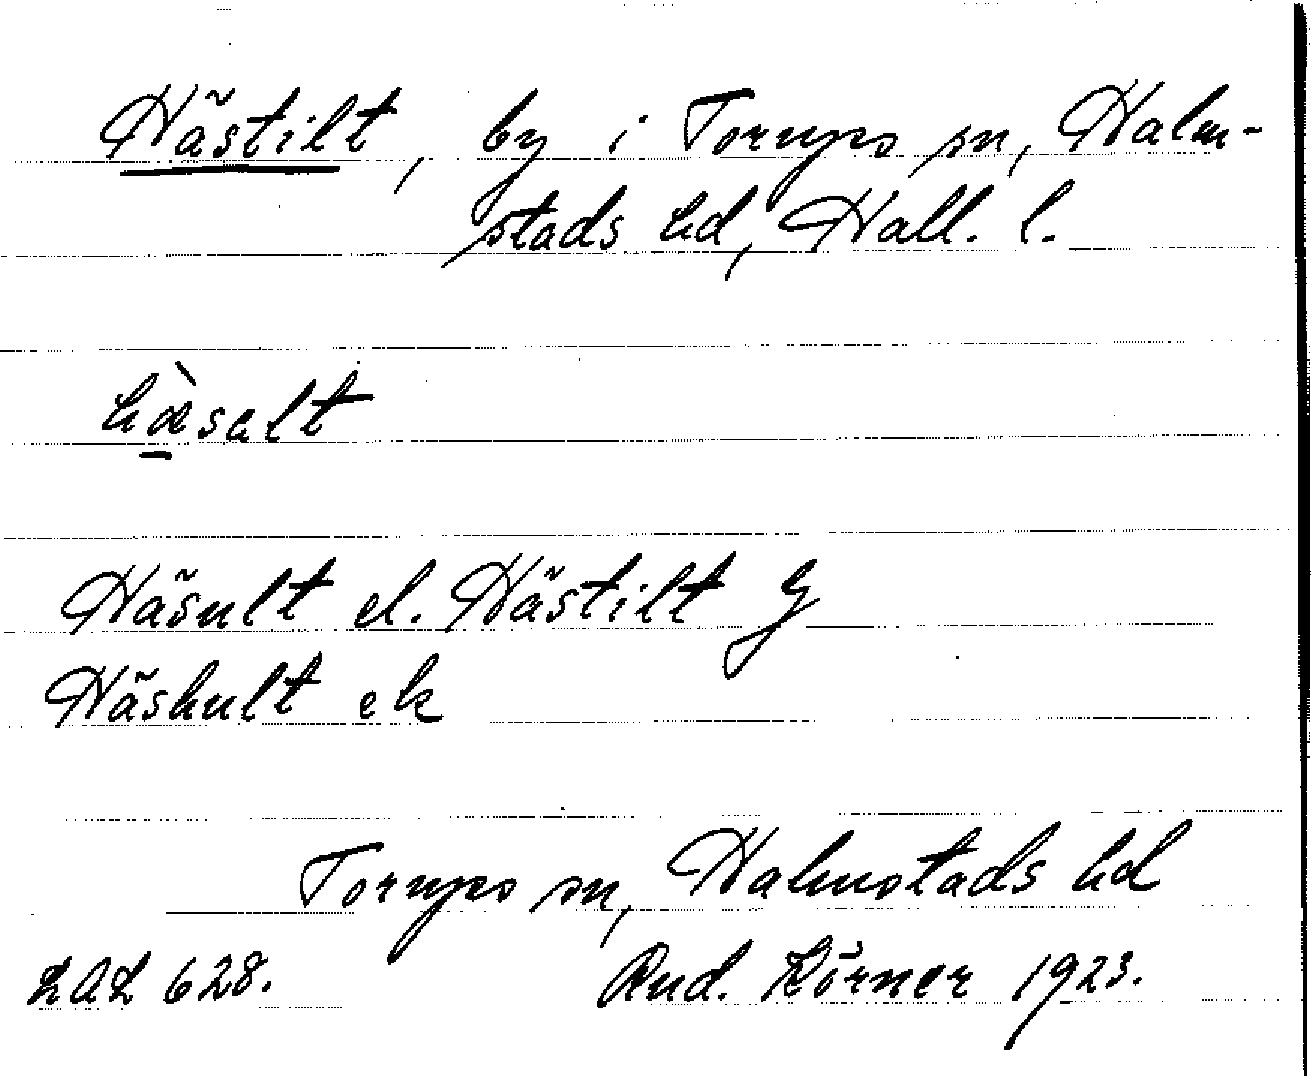 Hästilt, by i Torups sn, Halm-
stads hd, Hall. l.
hæ̀salt
Häsult el. Hästilt G
Häshult ek
Torups sn, Halmstads hd
LAL 628. Rud. Körner 1923.